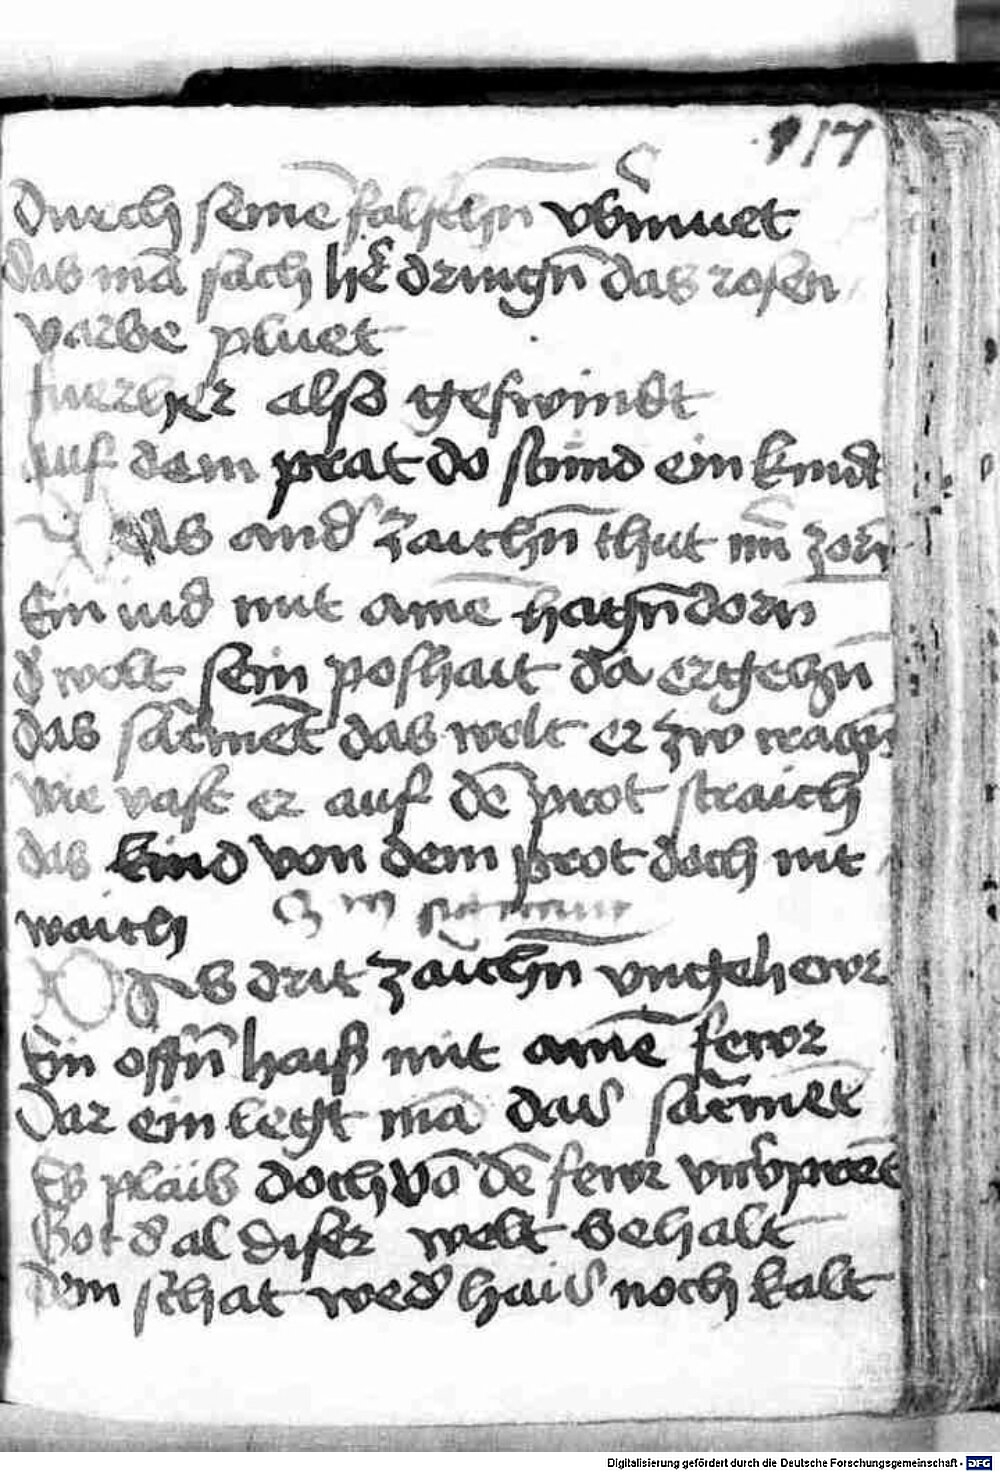 117
durch seine͞ falsch͞n vb͛muet
das ma͞ sach h͛ dring͞n das rosen
varbe pluet
fuerher alß geswindt
auf dem prat do stund ein kindt
Das and͛ zaich͞n thut mi͞r zorn
Ein iud mit aine͞ hag͞ndorn
d͛ wolt sein poshait da ergeb͞n
das sac͛me͞t das wolt er zw
wie vast er auf de͞ prot straich
das kind von dem prot doch nit
waich
Das drit zaich͞n vngehewr
Ein off͞n haiß mit aine͞ fewr
Dar ein legt ma͞ das sac͛me͞t
Es plaib doch vo͞ de͞ fewr vnv͛pre͞t
Got d͛ al diser welt behalt
dem schat wed͛ hais noch kalt
Digitalisierung gefördert durch die Deutsche Forschungsgemeinschaft - DFG